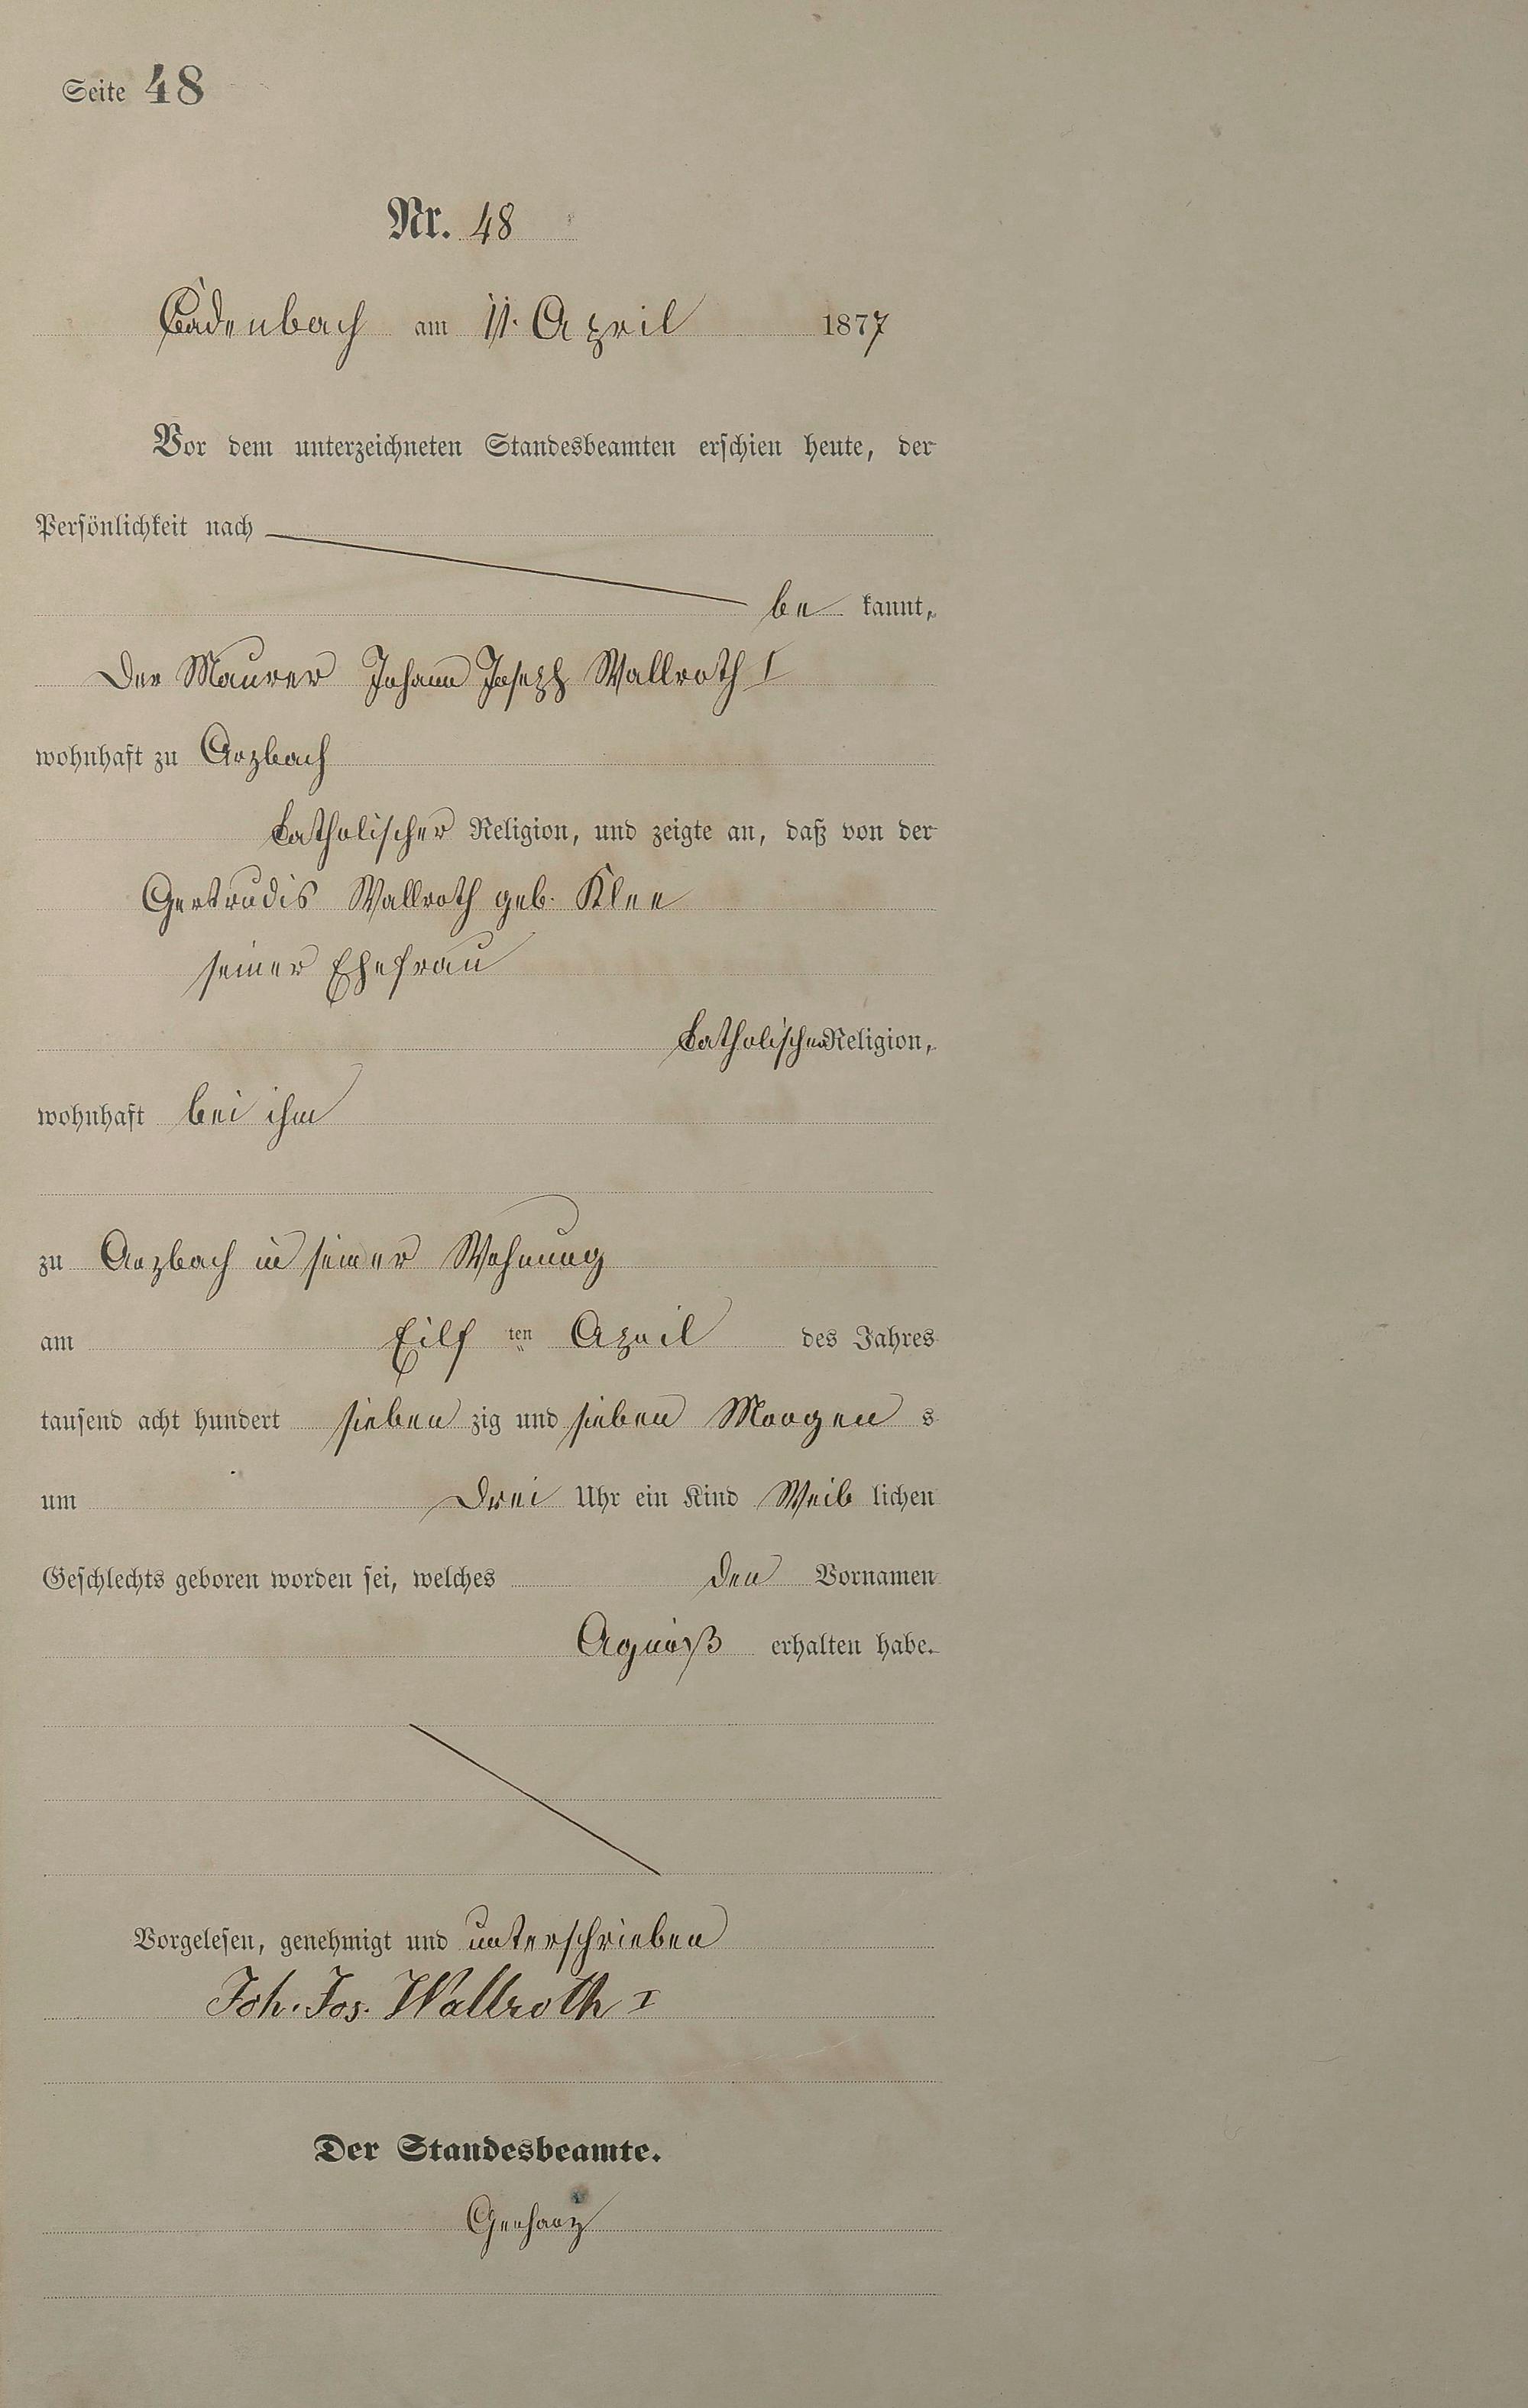 Seite 48
Nr. 48
Cadenbach am 11. April 1877
Vor dem unterzeichneten Standesbeamten erschien heute, der
Persönlichkeit nach
be kannt,
Der Maurer Johann Joseph Wallroth I
wohnhaft zu Arzbach
katholischer Religion, und zeigte an, daß von der
Gertrudis Wallroth geb. Klee
seiner Ehefrau
katholischer Religion,
wohnhaft bei ihm
zu Arzbach in seiner Wohnung
am Eilf ten April des Jahres
tausend acht hundert sieben zig und sieben Morgen s
um Drei Uhr ein Kind Weib lichen
Geschlechts geboren worden sei, welches den Vornamen
Agneß erhalten habe.
Vorgelesen, genehmigt und unterschrieben
Joh. Jos. Wallroth I
Der Standesbeamte.
Gerharz